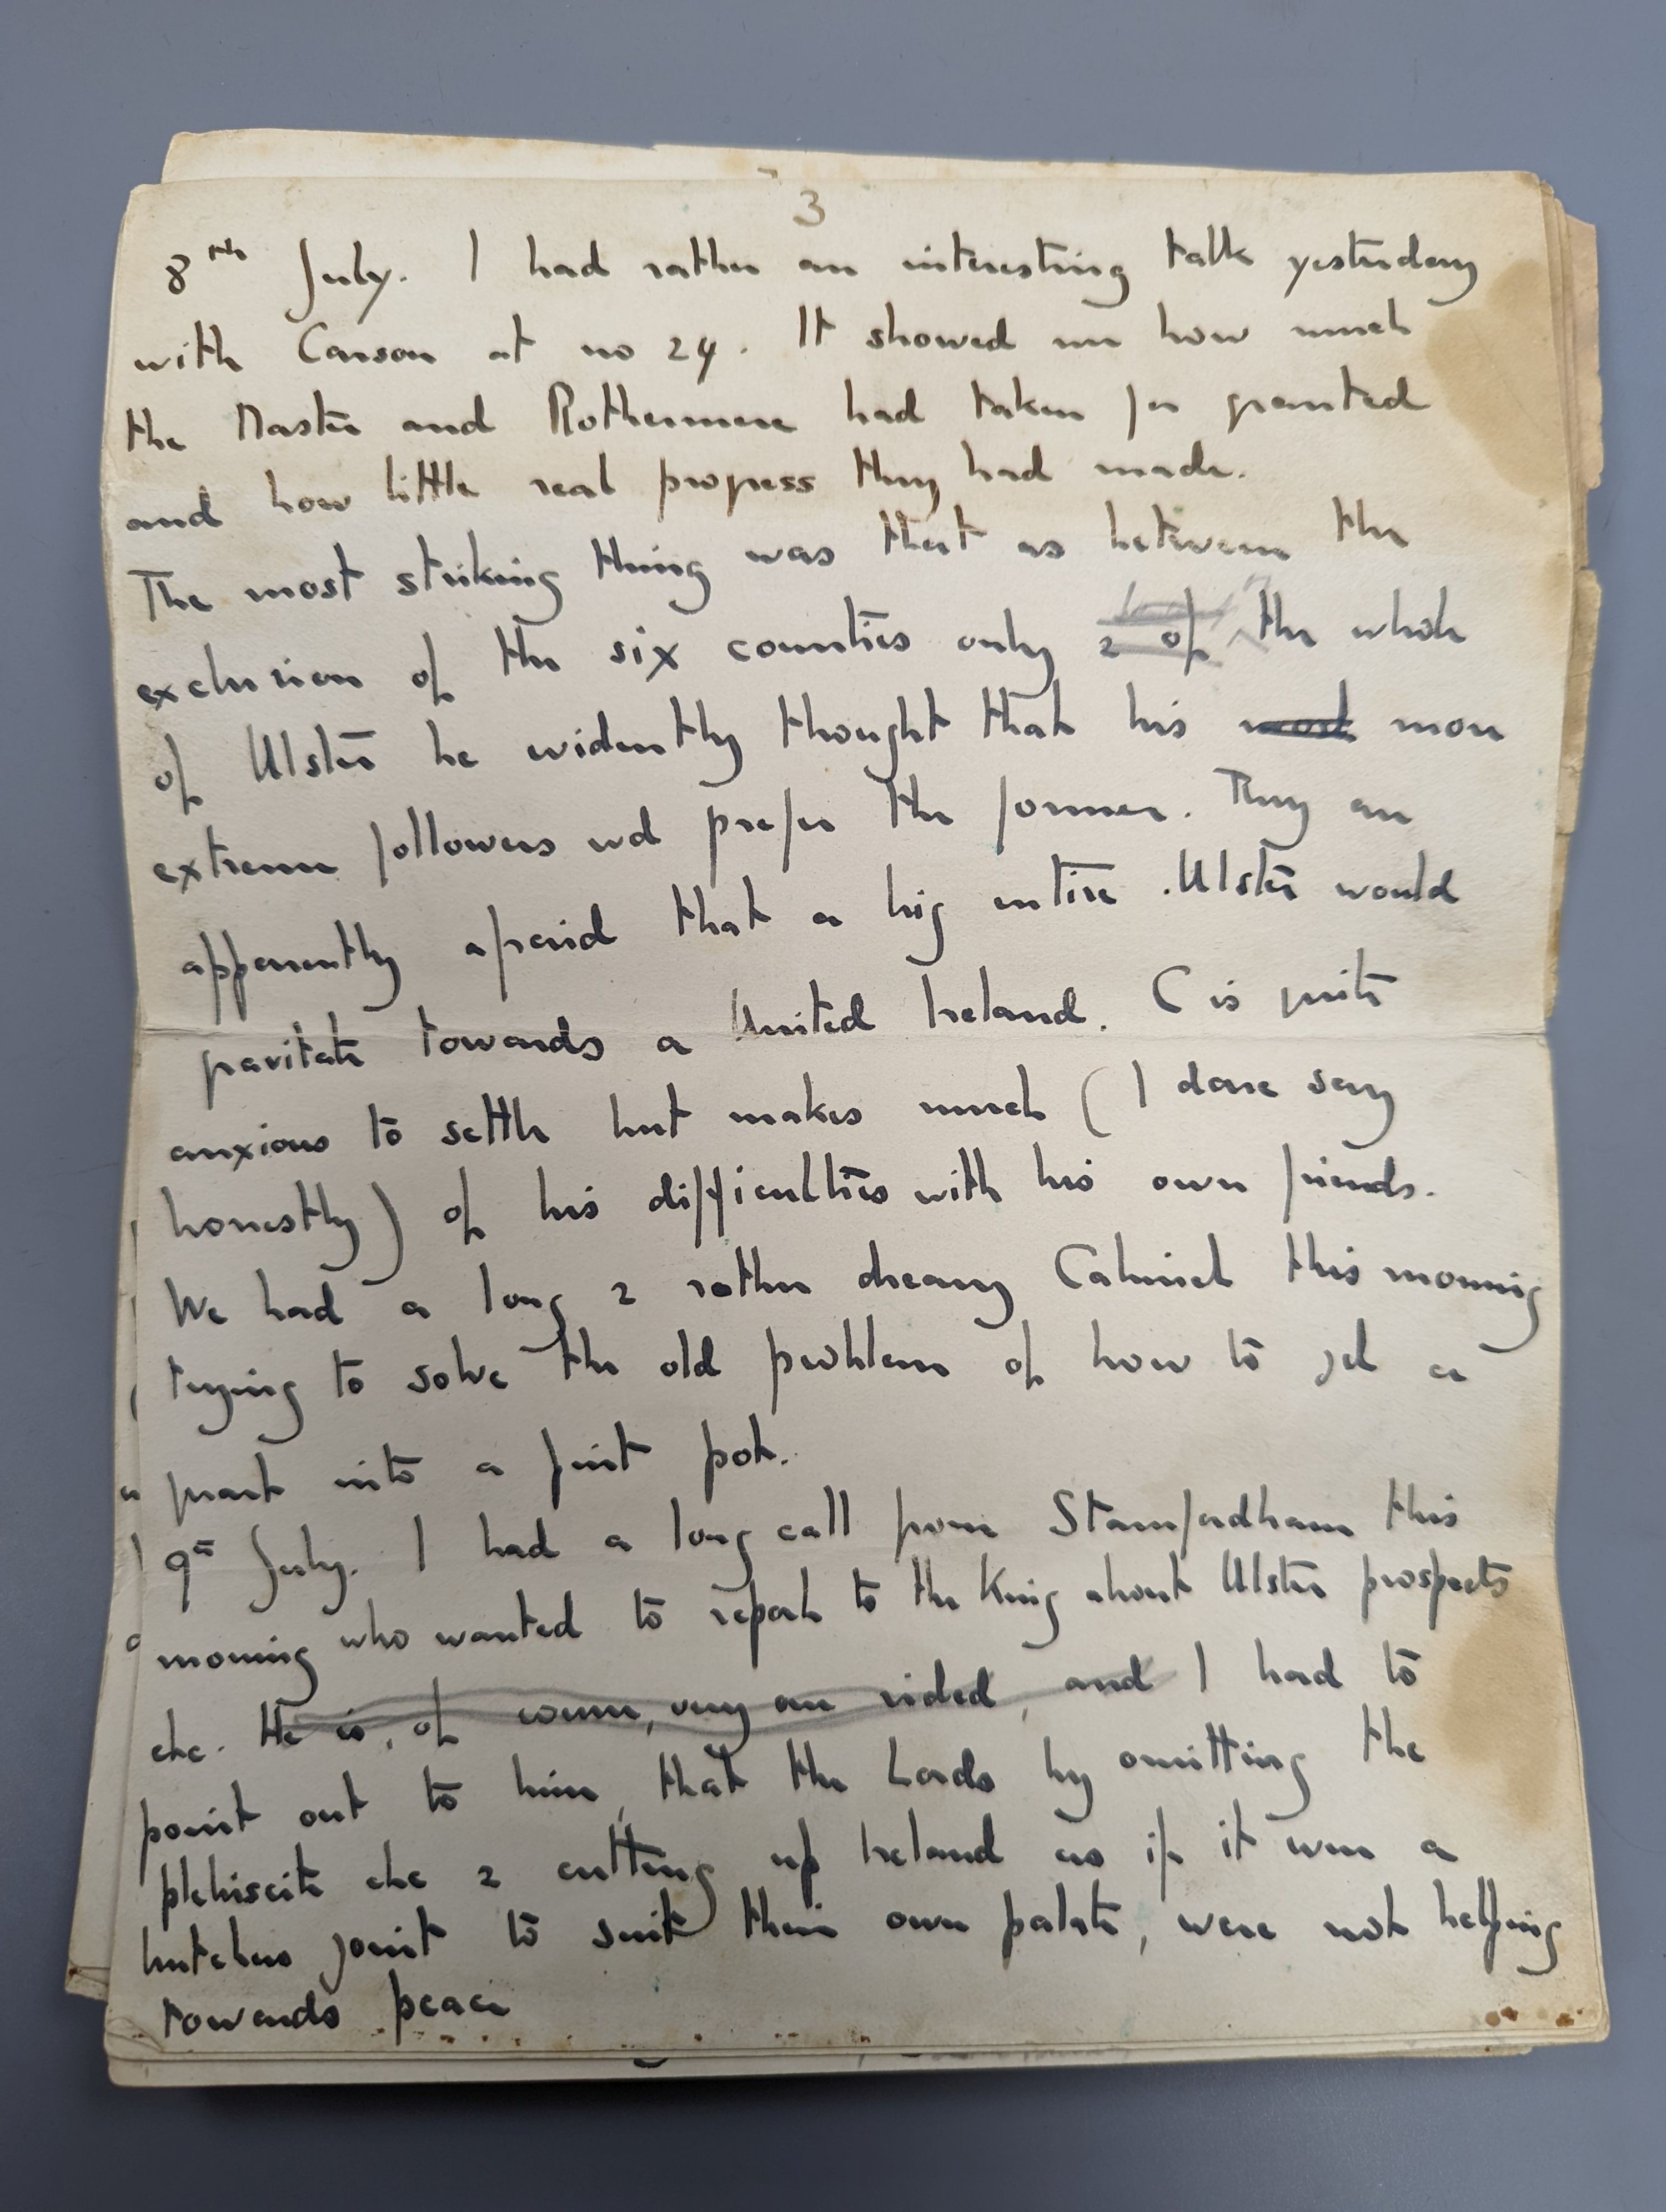 3
8th July. I had rather an interesting talk yesterday
with Carson at no 24. It showed me how much
the Master and Rothermere had taken for granted
and how little real progress they had made.
The most striking thing was that as between the
exclusion of the six counties only & of the whole
of Ulster he evidently thought that his most more
extreme followers wd prefer the former. They are
apparently afraid that a big entire Ulster would
gravitate towards a United Ireland. C is quite
anxious to settle but makes much (I dare say
honestly) of his difficulties with his own friends.
We had a long & rather dreary Cabinet this morning
trying to solve the old problem of how to get a
quart into a pint pot.
9th July. I had a long call from Stamfordham this
morning who wanted to report to the King about Ulster prospects
etc. He is, of course, very one sided, and I had to
point out to him, that the Lords by omitting the
plebiscite etc & cutting up Ireland as if it were a
butchers joint to suit their own palate, were not helping
towards peace